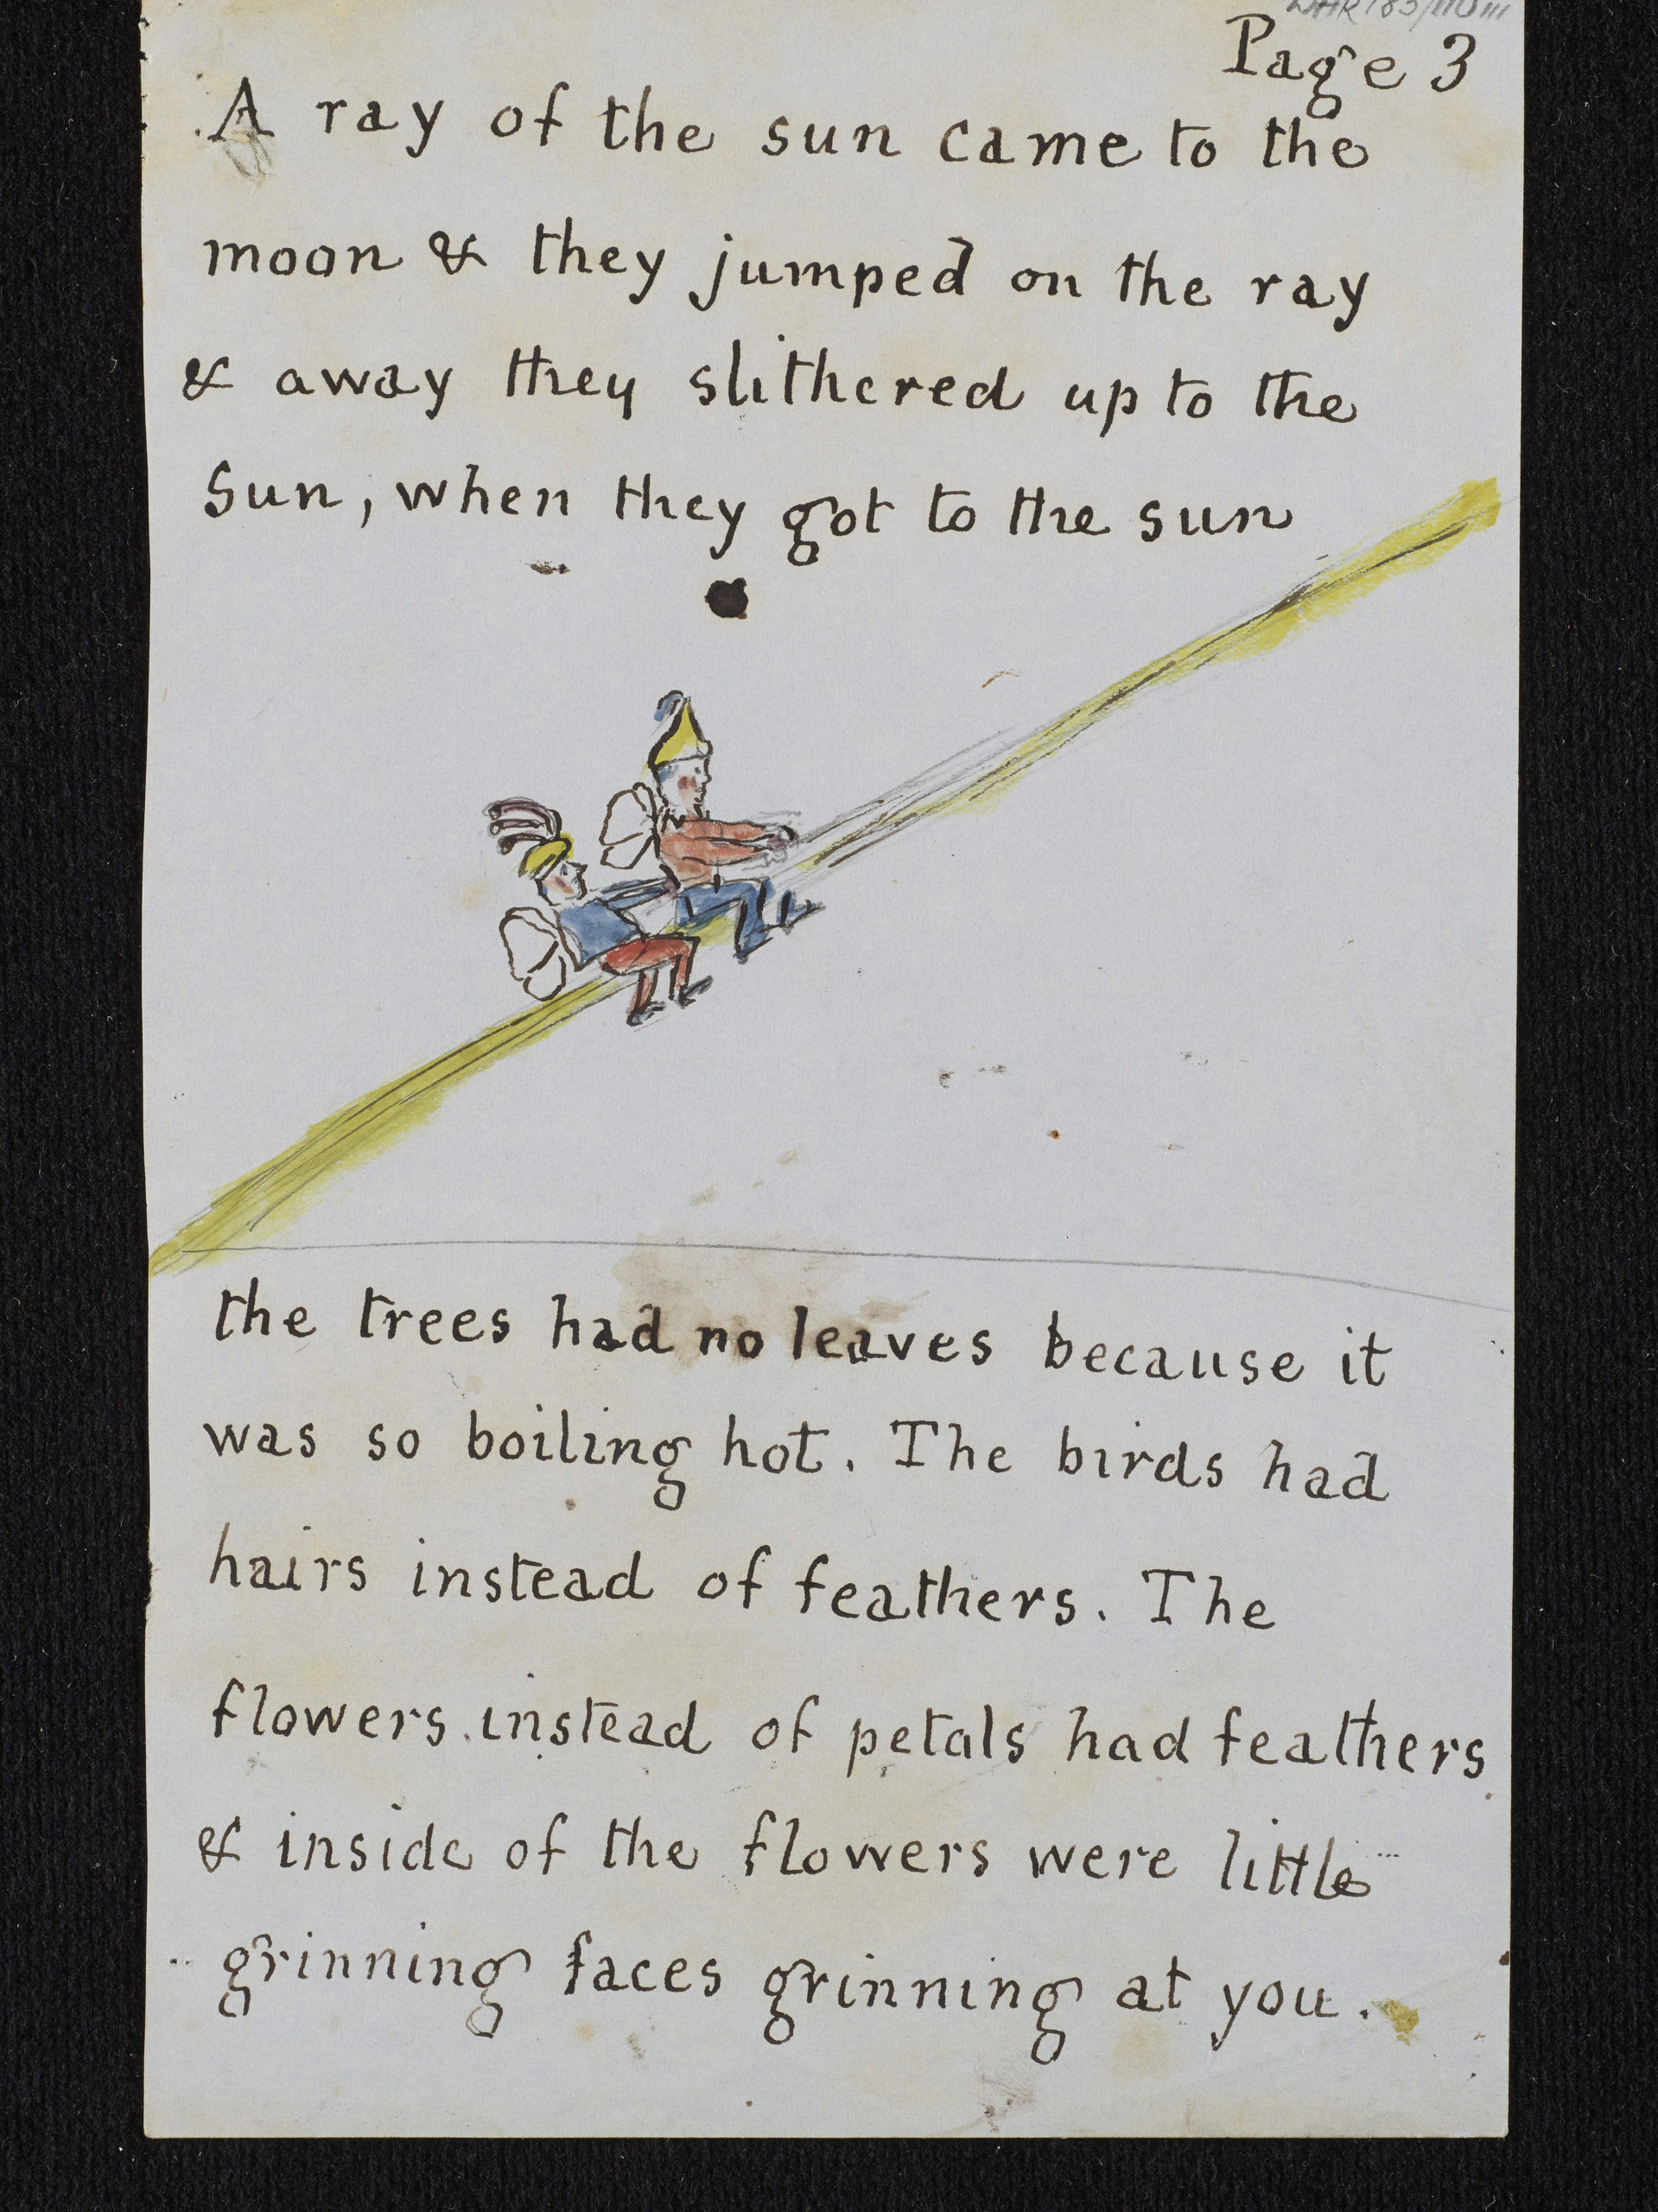 Page 3
A ray of the sun came to the
moon & they jumped on the ray
& away they slithered up to the
Sun, when they got to the sun
the trees had no leaves because it
was so boiling hot. The birds had
hairs instead of feathers. The
flowers instead of petals had feathers
& inside of the flowers were little
grinning faces grinning at you.